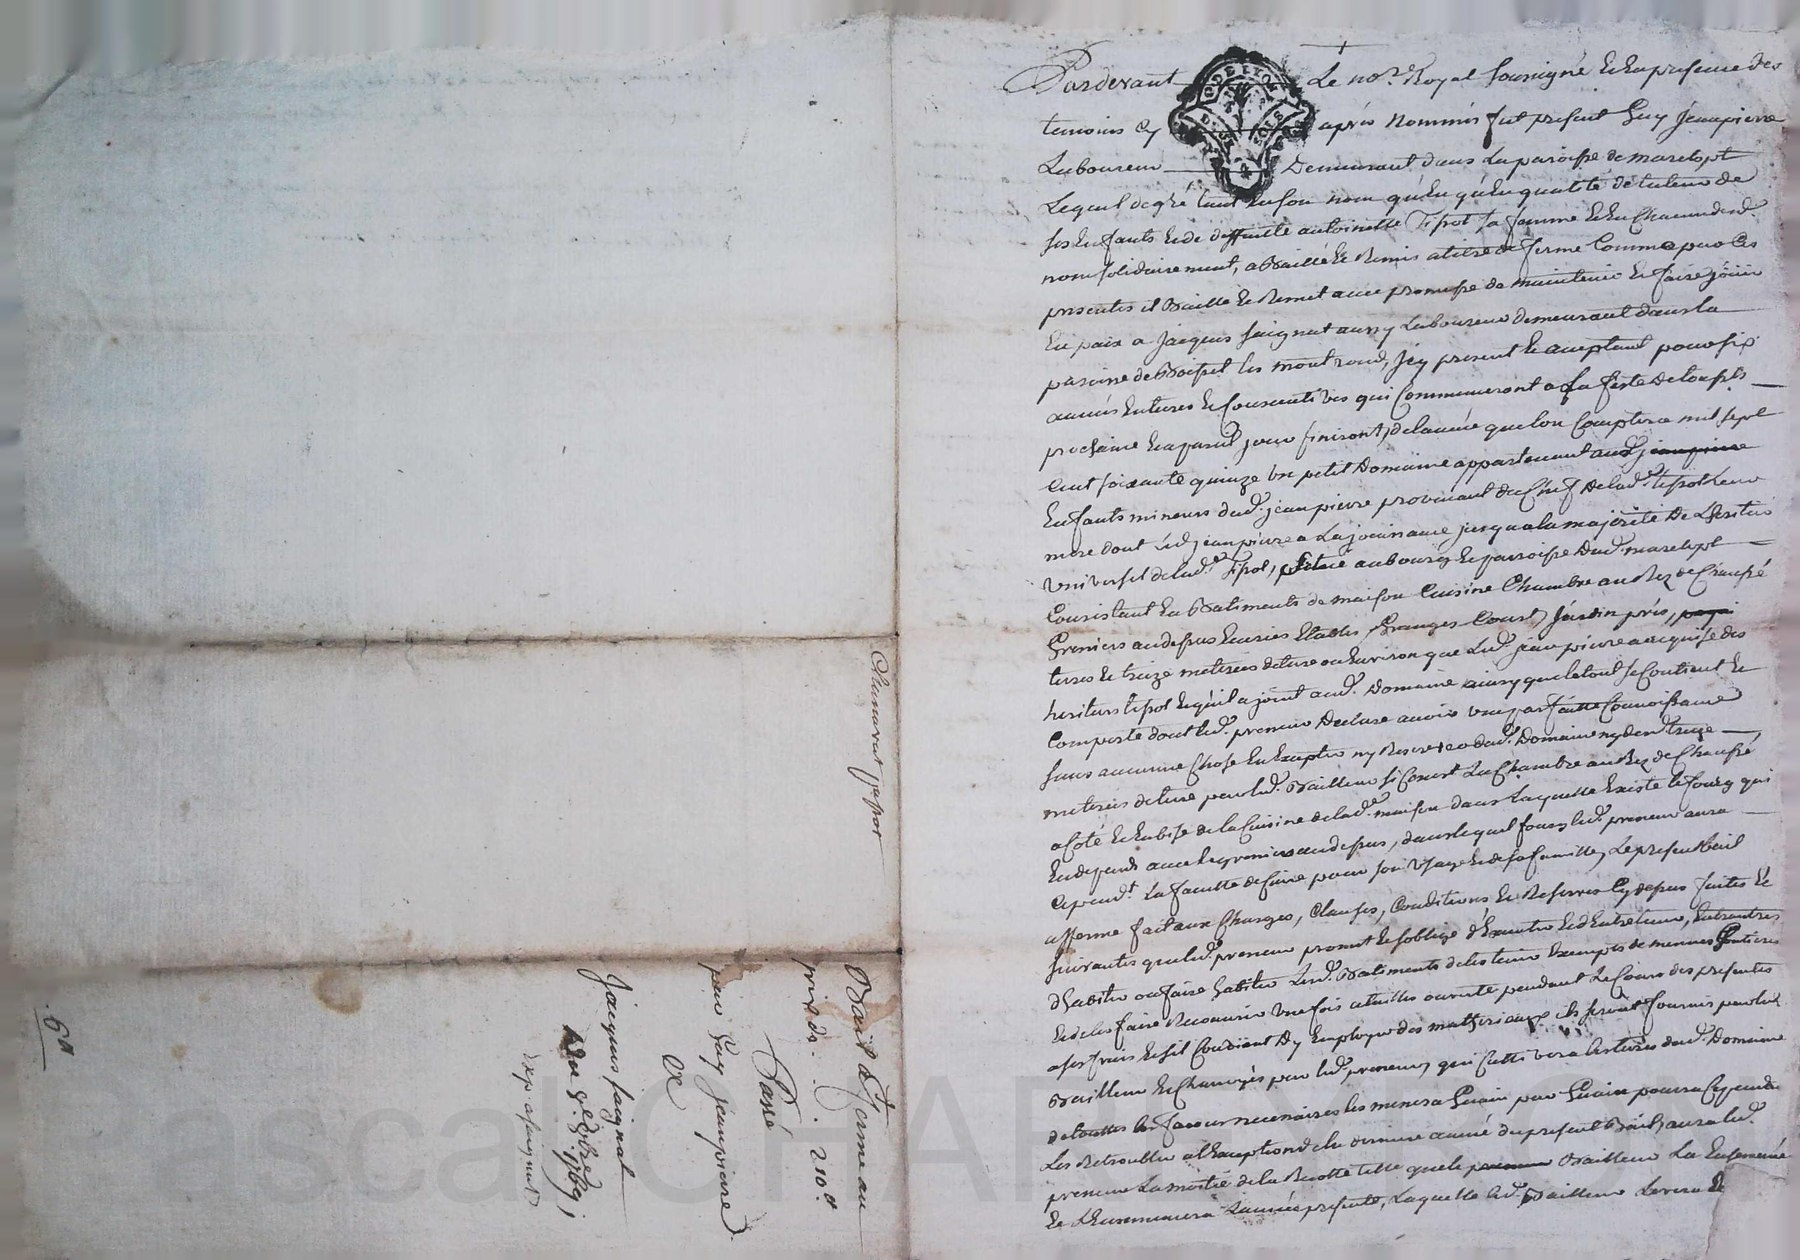 Pardevant Le no.re Royal soussigné et En presence des
temoins cy après Nommés fut present Guy jeanpierre
Laboureur Demeurant dans La paroisse de marclopt
Lequel de gré tant En son nom qu'En qu'En qualité de tuteur de
ses Enfants et de deffunte antoinette Tipot sa femme et En Chacun desd.
nom solidairement, a Baillé et Remis a titre de ferme Comme par Ces
presentes il Baille et Remet avec promesse de maintenir et faire jöuir
En paix a Jacques saignat aussy Laboureur demeurant dans la
paroisse de Boisset les montrond, jcy present et acceptant pour six
années Entieres et Consecutives qui Commenceront a La feste de toussts
prochaine Et a pareil jour finiront, de l'année que l'on Comptera mil sept
Cent soixante quinze Un petit Domaine appartenant aud. jeanpierre
Enfants mineurs dud. jeanpierre provenant du Chef de lad. tipot Leur
mere dont Led. jeanpierre a La jouissance jusqu'a la majorité De L'heritier
Universel de lad.e Tipot, situé au bourg et parroisse Dud. marclopt
Consistant En Batiments de maison Cuisine Chambre au Rez de Chaussé
Greniers au dessus Ecuries Etables, Granges Court, Jardin prés,
terres et treize meterées de terre ou Environ que Led. jeanpierre a acquise des
heritiers tipot et qu'il a joint aud. Domaine ainsy que le tout se Contient et
Comporte dont led. preneur Declare avoir une parfaitte Connoissance
sans aucune Chose En Excepter ny Reserver dud. Domaine ny desd. treize
meterées de terre par led. Bailleur si Ce n'est La Chambre au Rez de Chaussé
a Coté et En bise de la Cuisine de lad.e maison dans Laquelle Existe le fourg qui
En depend avec le grenier au dessus, dans lequel fourg led. preneur aura
Cepend.t La faculté de Cuire pour son Usage et de sa famille, Le present bail
afferme fait aux Charges, Clauses, Conditions et Reserves Cy dessus faites et
suivantes que led. preneur promet et s'oblige d'Executer et d'Entretenir, Entr'autres
d'habiter ou faire habiter Lesd. Batiments de les tenir Exempts de menues Goutieres
et de les faire Recouvrir Une fois a tailles ouverte pendant Le Cours des presentes
a ses frais Et s'il Convient D'y Employer des materiaux ils seront fournis par led.
Bailleur et Charroyés par led. preneur, qui Cultivera les terres dud. Domaine
de touttes les façons necessaires les menera Gerain par Gerain pourra Cependt
Les Retroubler a l'Exception de la derniere année du present Bail, aura led.
preneur La moitié de la Recolte telle que le Bailleur La Ensemencé
et L'Ensemencera L'année presente, Laquelle led. Bailleur Levera et
Chamarat jeapot
Bail à ferme au
prix de . . . 210#
Passé
par Guy jeanpierre
A
Jacques saignat
du 9.e 8bre 1769
exp. a saignat